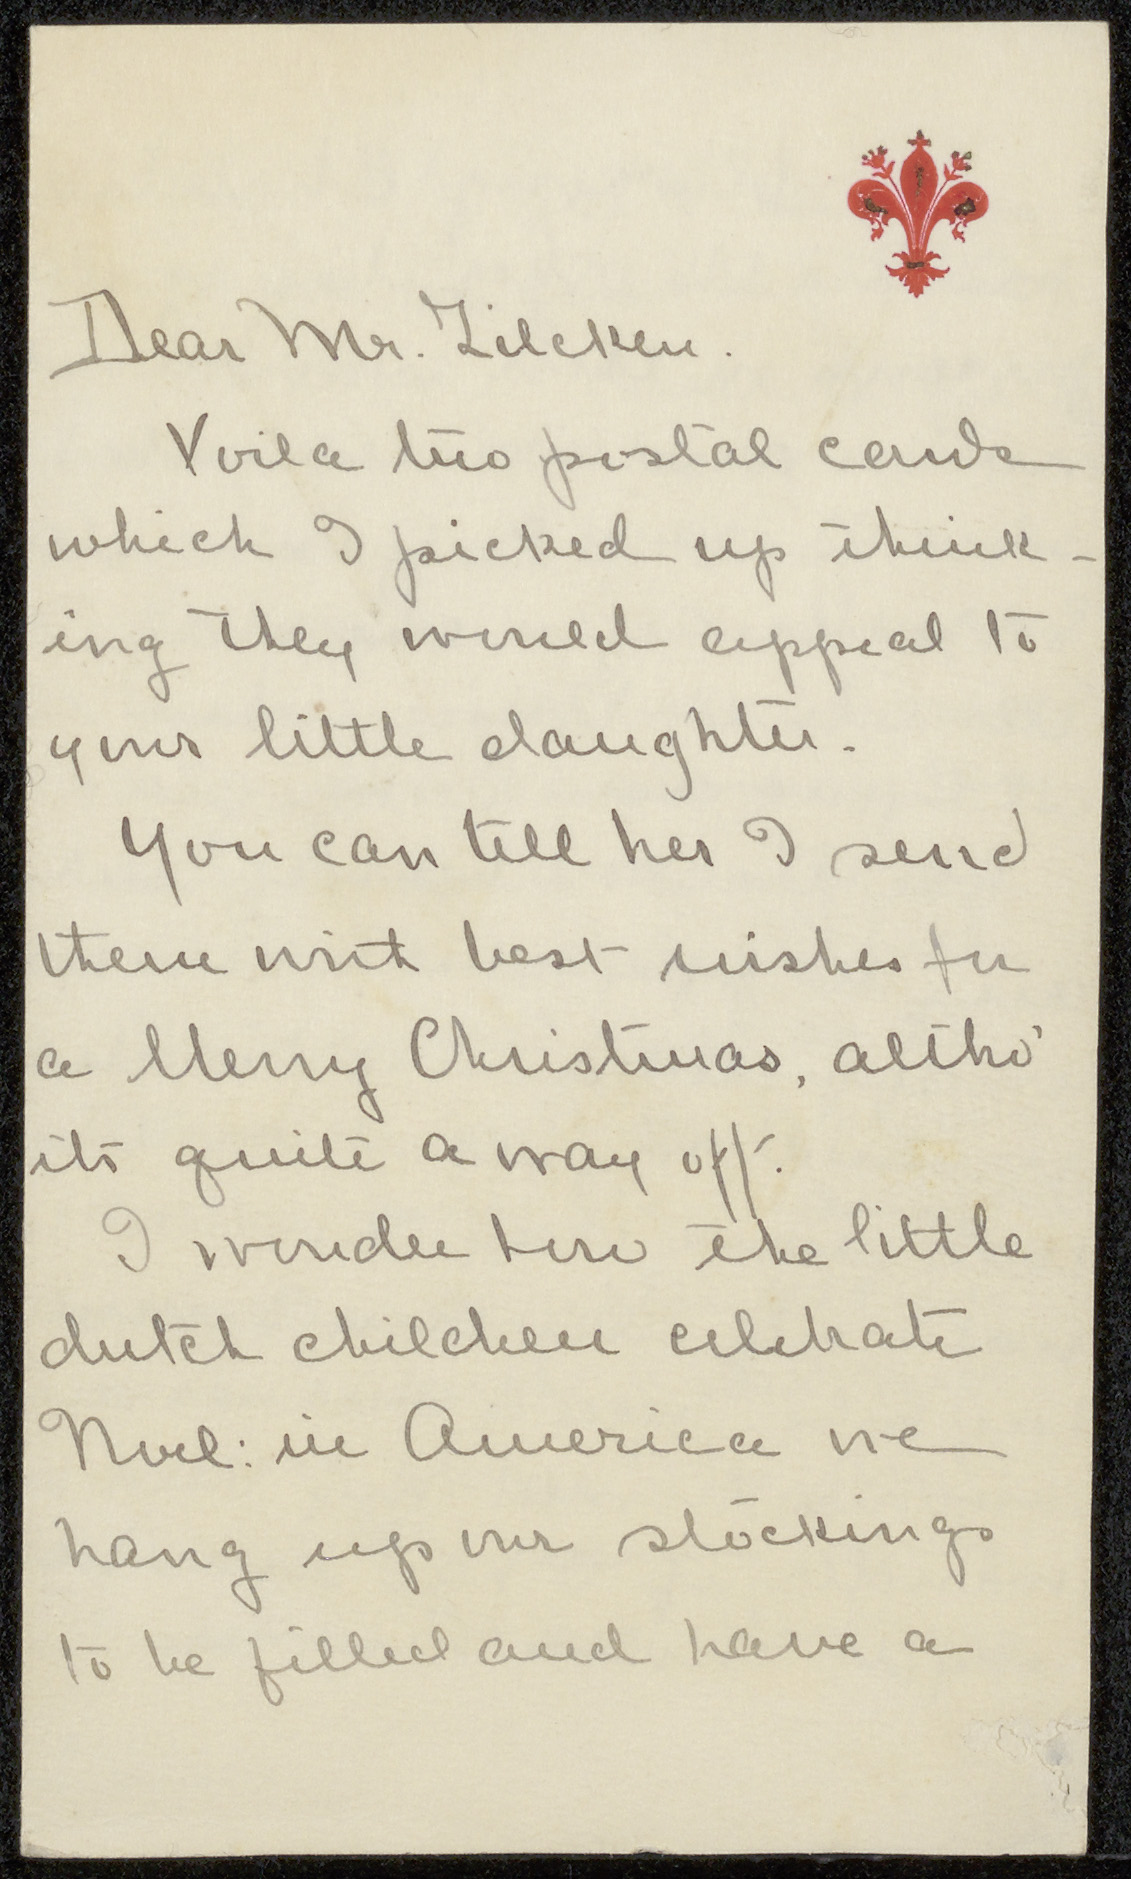 Dear Mr. Zilcken.
Voila two postal cards
which I picked up think-
ing they would appeal to
your little daughter.
You can tell her I send
them with best wishes for
a Merry Christmas, altho'
its quite a way off.
I wonder how the little
dutch children celebrate
Noel: in America we
hang up our stockings
to be filled and have a